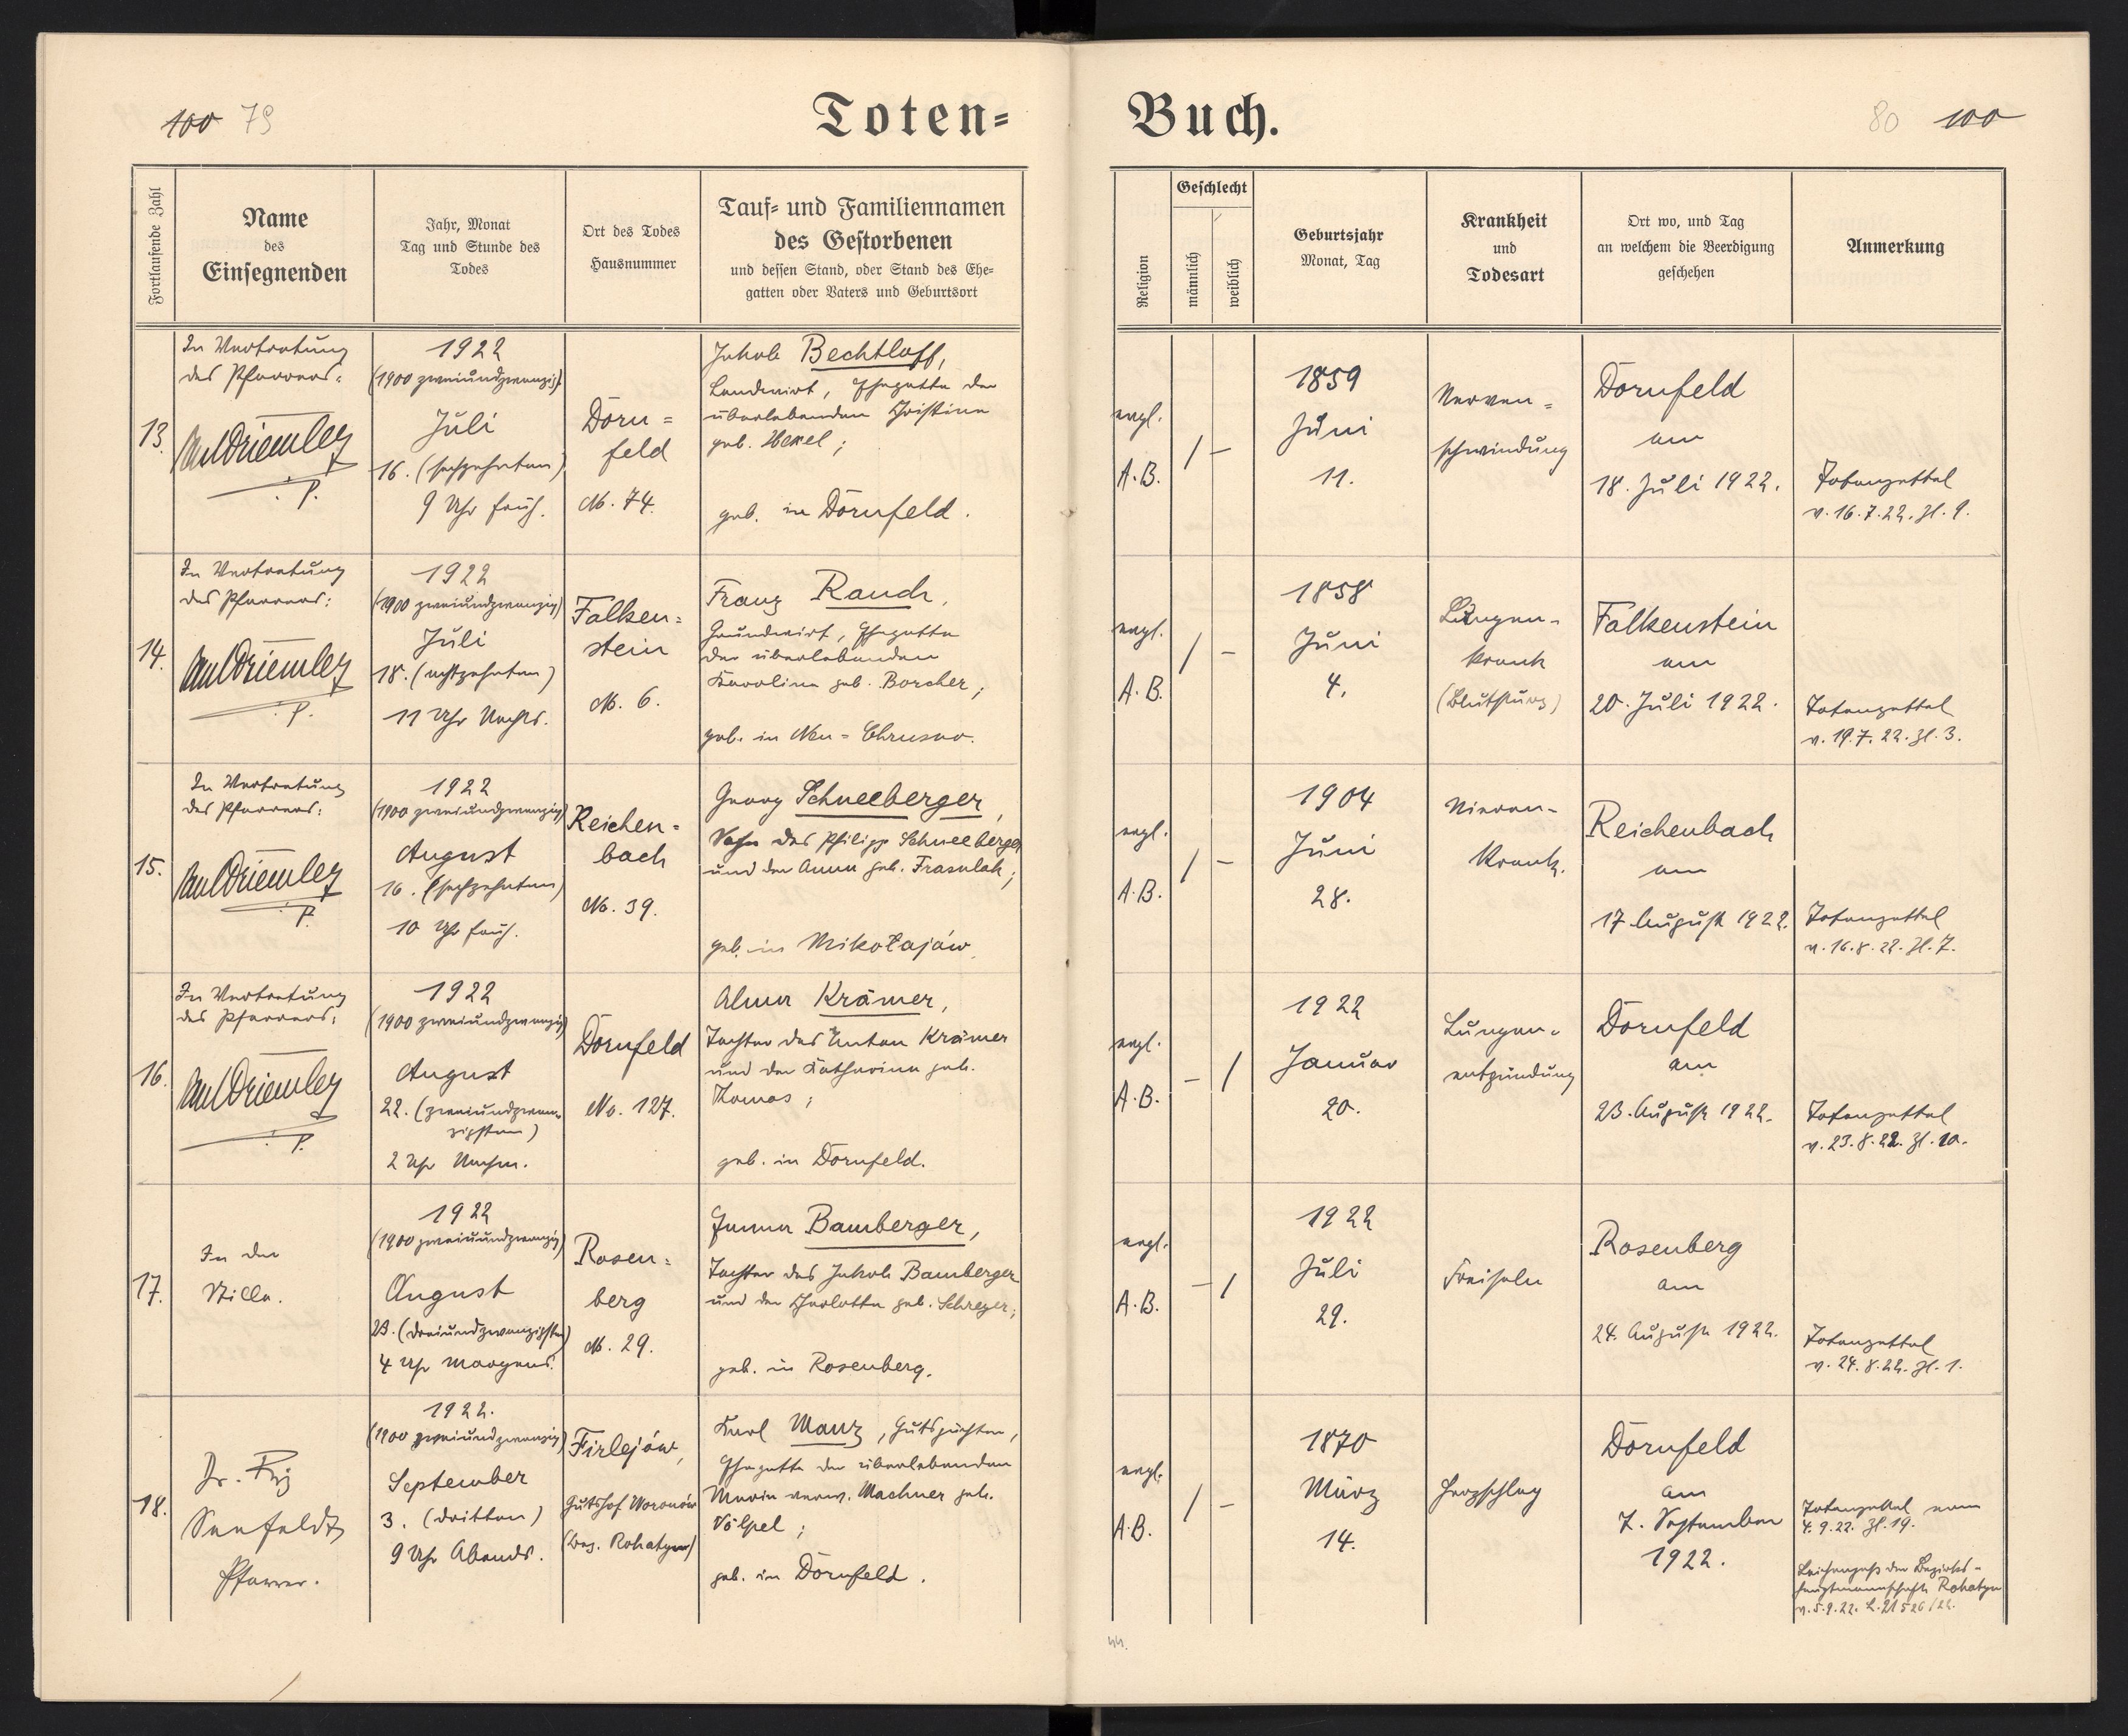 100 79
Toten=
Buch.
80 100
Fortlaufende Zahl
Name
des
Einsegnenden
Jahr, Monat
Tag und Stunde des
Todes
Ort des Todes
Hausnummer
Tauf= und Familiennamen
des Gestorbenen
und dessen Stand, oder Stand des Ehe=
gatten oder Vaters und Geburtsort
Religion
Geschlecht
männlich
weiblich
Geburtsjahr
Monat, Tag
Krankheit
und
Todesart
Ort wo, und Tag
an welchem die Beerdigung
geschehen
Anmerkung
13.
In Vertretung
des Pfarrers:
P.
1922
(1900 zweiundzwanzig)
Juli
16. (sechzehnten)
9 Uhr früh.
Dorn=
feld
No. 74.
Jakob Bechtloff,
Landwirt, Ehegatte der
überlebenden Christine
geb. ;
geb. in Dornfeld.
evgl.
A.B.
/ –
1859
Juni
11.
Nerven=
schwindung
Dornfeld
am
18. Juli 1922.
Totenzettel
v. 16.7.22. Zl. 9.
14.
In Vertretung
des Pfarrers:
P.
1922
(1900 zweiundzwanzig)
Juli
18. (achtzehnten)
11 Uhr Nachts.
Falken=
stein
No. 6.
Franz Rauch,
Grundwirt, Ehegatte
der überlebenden
Karoline geb. Borcher;
geb. in Neu=Chrusno.
evgl.
A.B.
/ –
1858
Juni
4.
Lungen-
krank
(Blutsturz)
Falkenstein
am
20. Juli 1922.
Totenzettel
v. 19.7.22. Zl. 3.
15.
In Vertretung
des Pfarrers:
P.
1922
(1900 zweiundzwanzig)
August
16. (sechzehnten)
10 Uhr früh.
Reichen=
bach
No. 39.
Georg Schneeberger,
Sohn des Philipp Schneeberger
und der Anna geb. ;
geb. in Mikołajów.
evgl.
A.B.
/ –
1904
Juni
28.
Nieren-
krank.
Reichenbach
am
17. August 1922.
Totenzettel
v. 16.8.22. Zl. 7.
16.
In Vertretung
des Pfarrers:
P.
1922
(1900 zweiundzwanzig)
August
22. (zweiundzwan-
zigsten)
2 Uhr Nachm.
Dornfeld
No. 127.
Alma Krämer,
Tochter des Anton Krämer
und der Katharina geb.
;
geb. in Dornfeld.
evgl.
A.B.
– /
1922
Januar
20.
Lungen-
entzündung
Dornfeld
am
23. August 1922.
Totenzettel
v. 23.8.22. Zl. 10.
17.
In der
Stille.
1922
(1900 zweiundzwanzig)
August
23. (dreiundzwanzigsten)
4 Uhr Morgens.
Rosen=
berg
No. 29.
Emma Bamberger,
Tochter des Jakob Bamberger
und der Charlotte geb. Schreyer;
geb. in Rosenberg.
evgl.
A.B.
– /
1922
Juli
29.
Freiseln
Rosenberg
am
24. August 1922.
Totenzettel
v. 24.8.22. Zl. 1.
18.
Dr. Fritz
Seefeldt
Pfarrer.
1922.
(1900 zweiundzwanzig)
September
3. (dritten)
9 Uhr Abends.
Firlejów,
Gutshof Woronów
(Bez. Rohatyn)
Karl Manz, Gutspächter,
Ehegatte der überlebenden
Maria verw. Machner geb.
Völpel;
geb. in Dornfeld.
evgl.
A.B.
/ –
1870
März
14.
Herzschlag
Dornfeld
am
7. September
1922.
Totenzettel vom
4.9.22. Zl. 19.
Leichenpass der Bezirks-
hauptmannschaft Rohatyn
v. 5.9.22. L. 21526/22.
44.